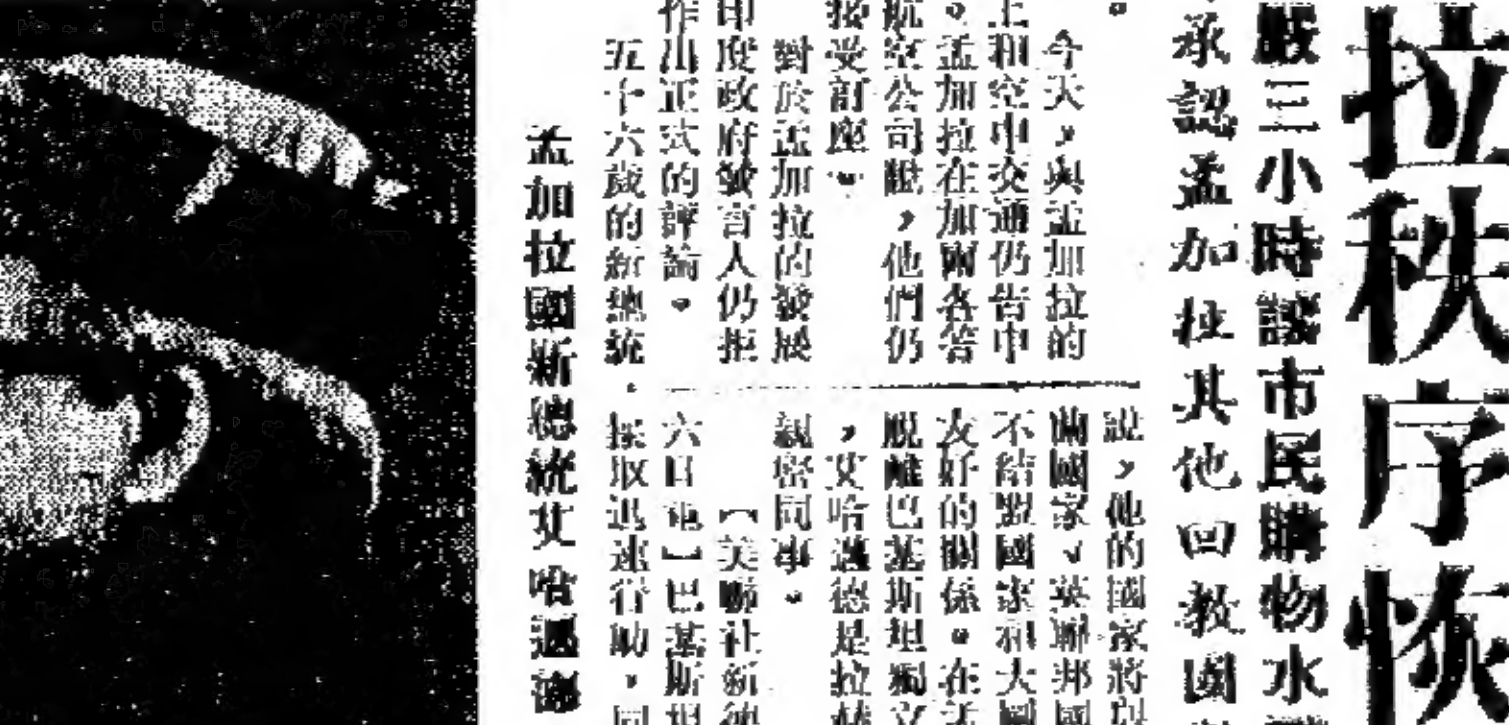 拉秩序恢
嚴三小時讓市民購物水
承認孟加拉其他回教國
。
今天，與孟加拉的
上和空中交通仍告中
。孟加拉在加爾各答
航空公司說，他們仍
接受訂座。
對於孟加拉的發展
印度政府發言人仍拒
作出正式的評論。
五十六歲的新總統，
說，他的國家將與
蘭國家、英聯邦國
不結盟國家和大國
友好的關係。在孟
脫離巴基斯坦獨立
，艾哈邁德是拉赫
親密同事。
【美聯社新德
六日電】巴基斯坦
採取迅速行動，同
孟加拉國新總統艾哈邁德